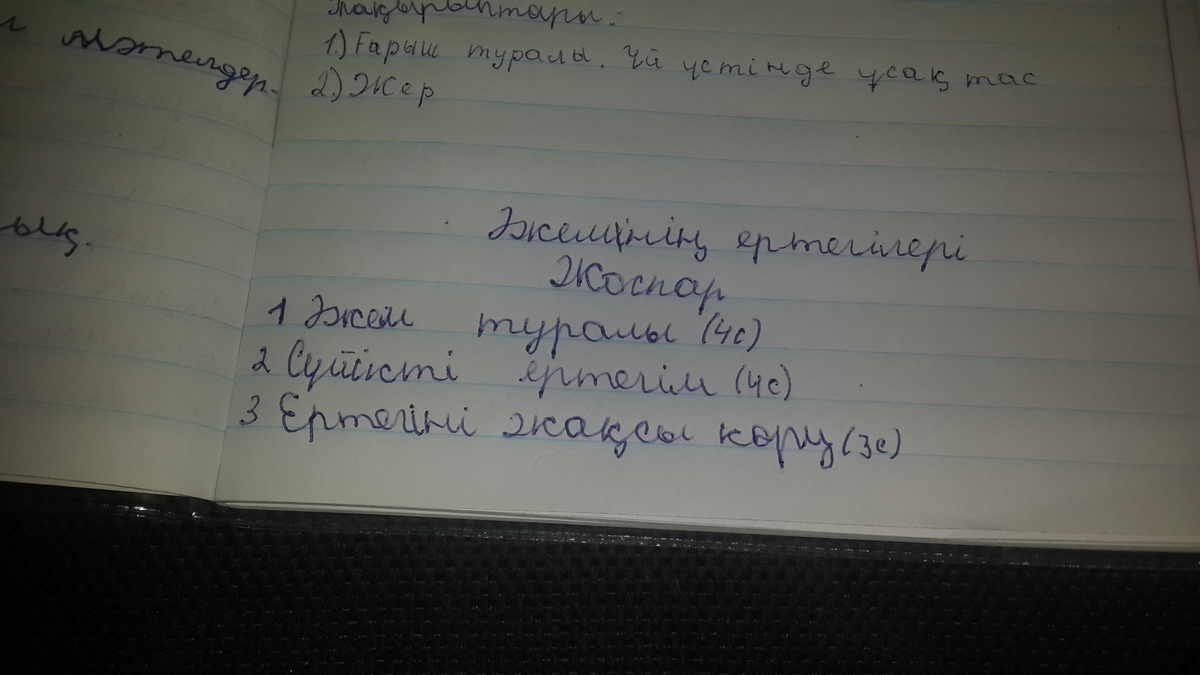 тақырыптары:
1.) Ғарыш туралы. Үй үстінде ұсақ тас
2.) Жер
мәтелдер.
ық.
Әжемінің ертегілері
Жоспар
1 Әжем туралы (4с)
2 Сүйікті ертегім (4с)
3 Ертегіні жақсы көру (3с)